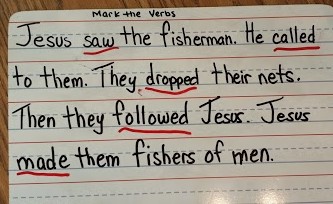 Mark the Verbs
Jesus saw the fisherman. He called
to them. They dropped their nets.
Then they followed Jesus. Jesus
made them fishers of men.